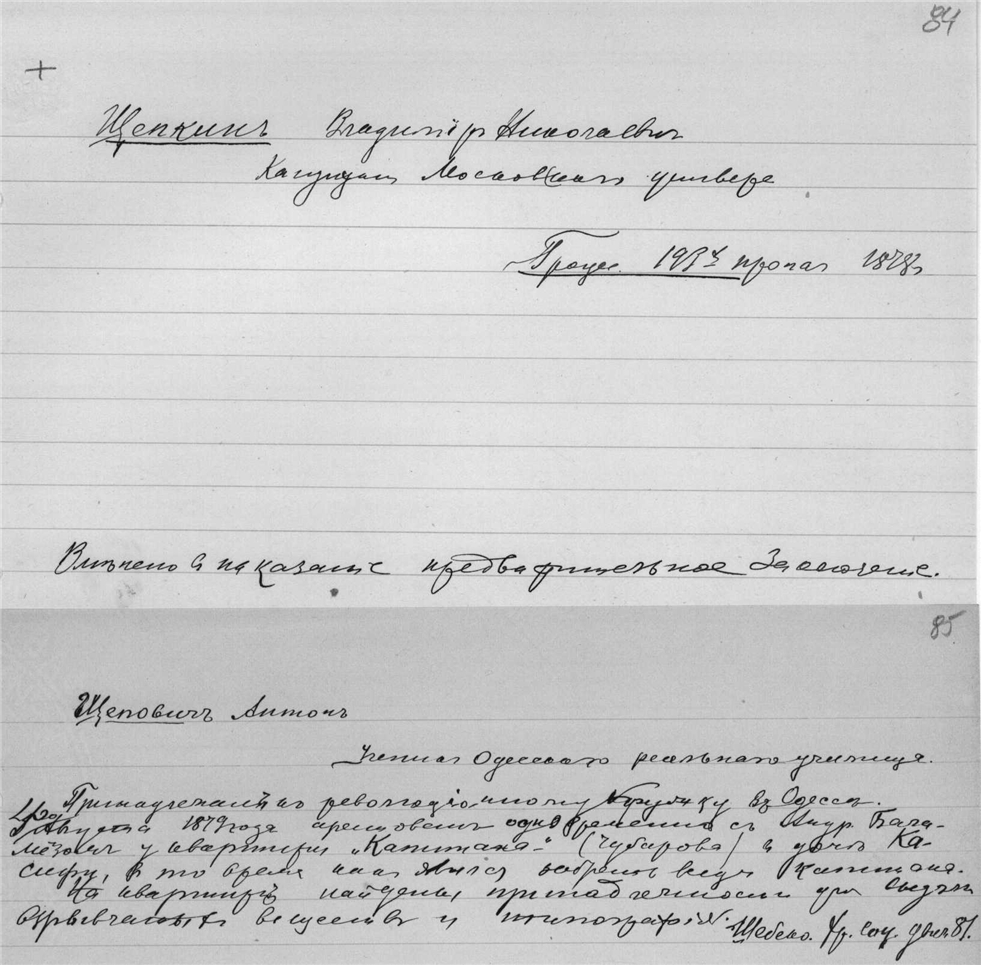 84
+
Щепкинъ Владимiръ Николаевич
Кандидат Московского универс
Процес 193х пропаг 1878г
Вмѣнено въ наказанiе предварительное заключенiе.
85
Щеповичъ Антонъ
Ученик Одесского реального училища.
Принадлежалъ къ революцiонному кружку въ Одессѣ.
Августа 1879 года арестованъ одновременно съ Андр. Бала-
мёзомъ у квартиры „Капитана“ (Чубарова) в домѣ Ка-
в то время как капитана.
На квартирѣ найдены принадлежности для выдѣлки
взрывчатыхъ веществ и типографiи. Щебеко. Хр. соц. движ 81.